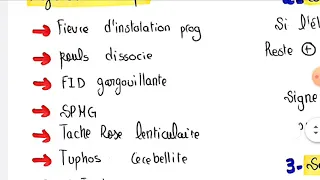 Fievre d'instalation prog
pouls dissocie
FID gargouillante
SPMG
Tache Rose lenticulaire
Tuphos cecebellite
Si l'él
Reste +
Signe
3-